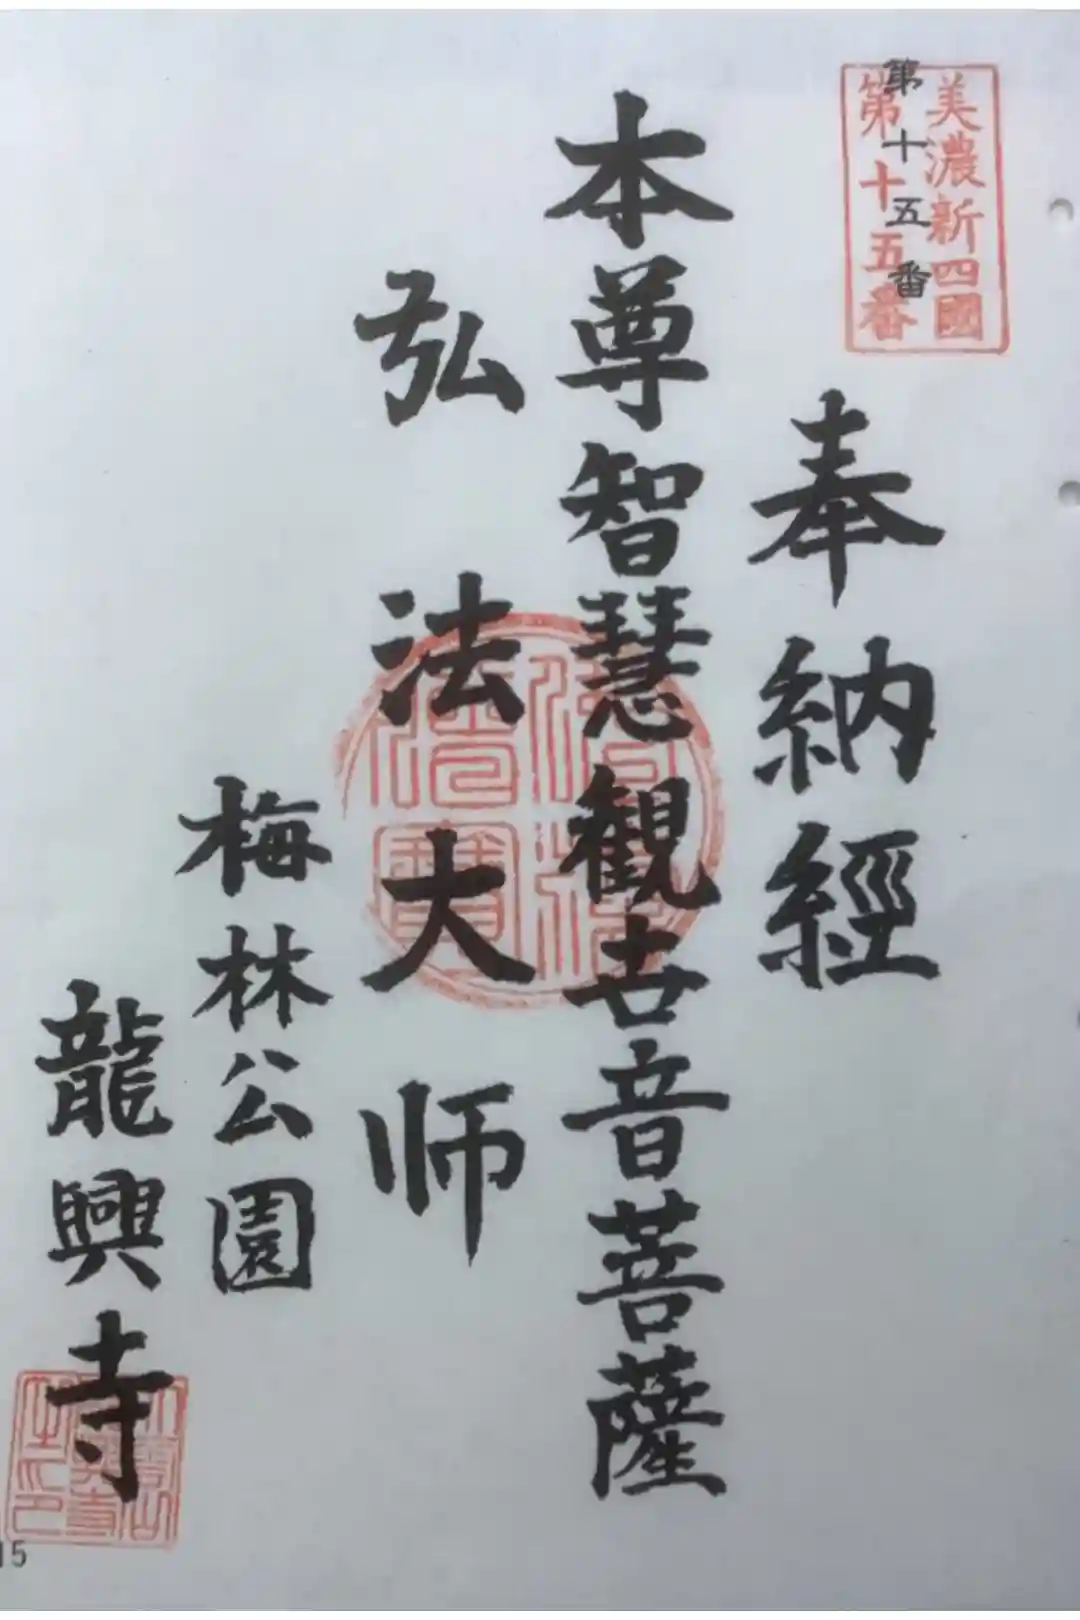 美濃新四國
第十五番
第十五番
奉納經
本尊智慧観世音菩薩
弘法大师
梅林公園
龍興寺
15